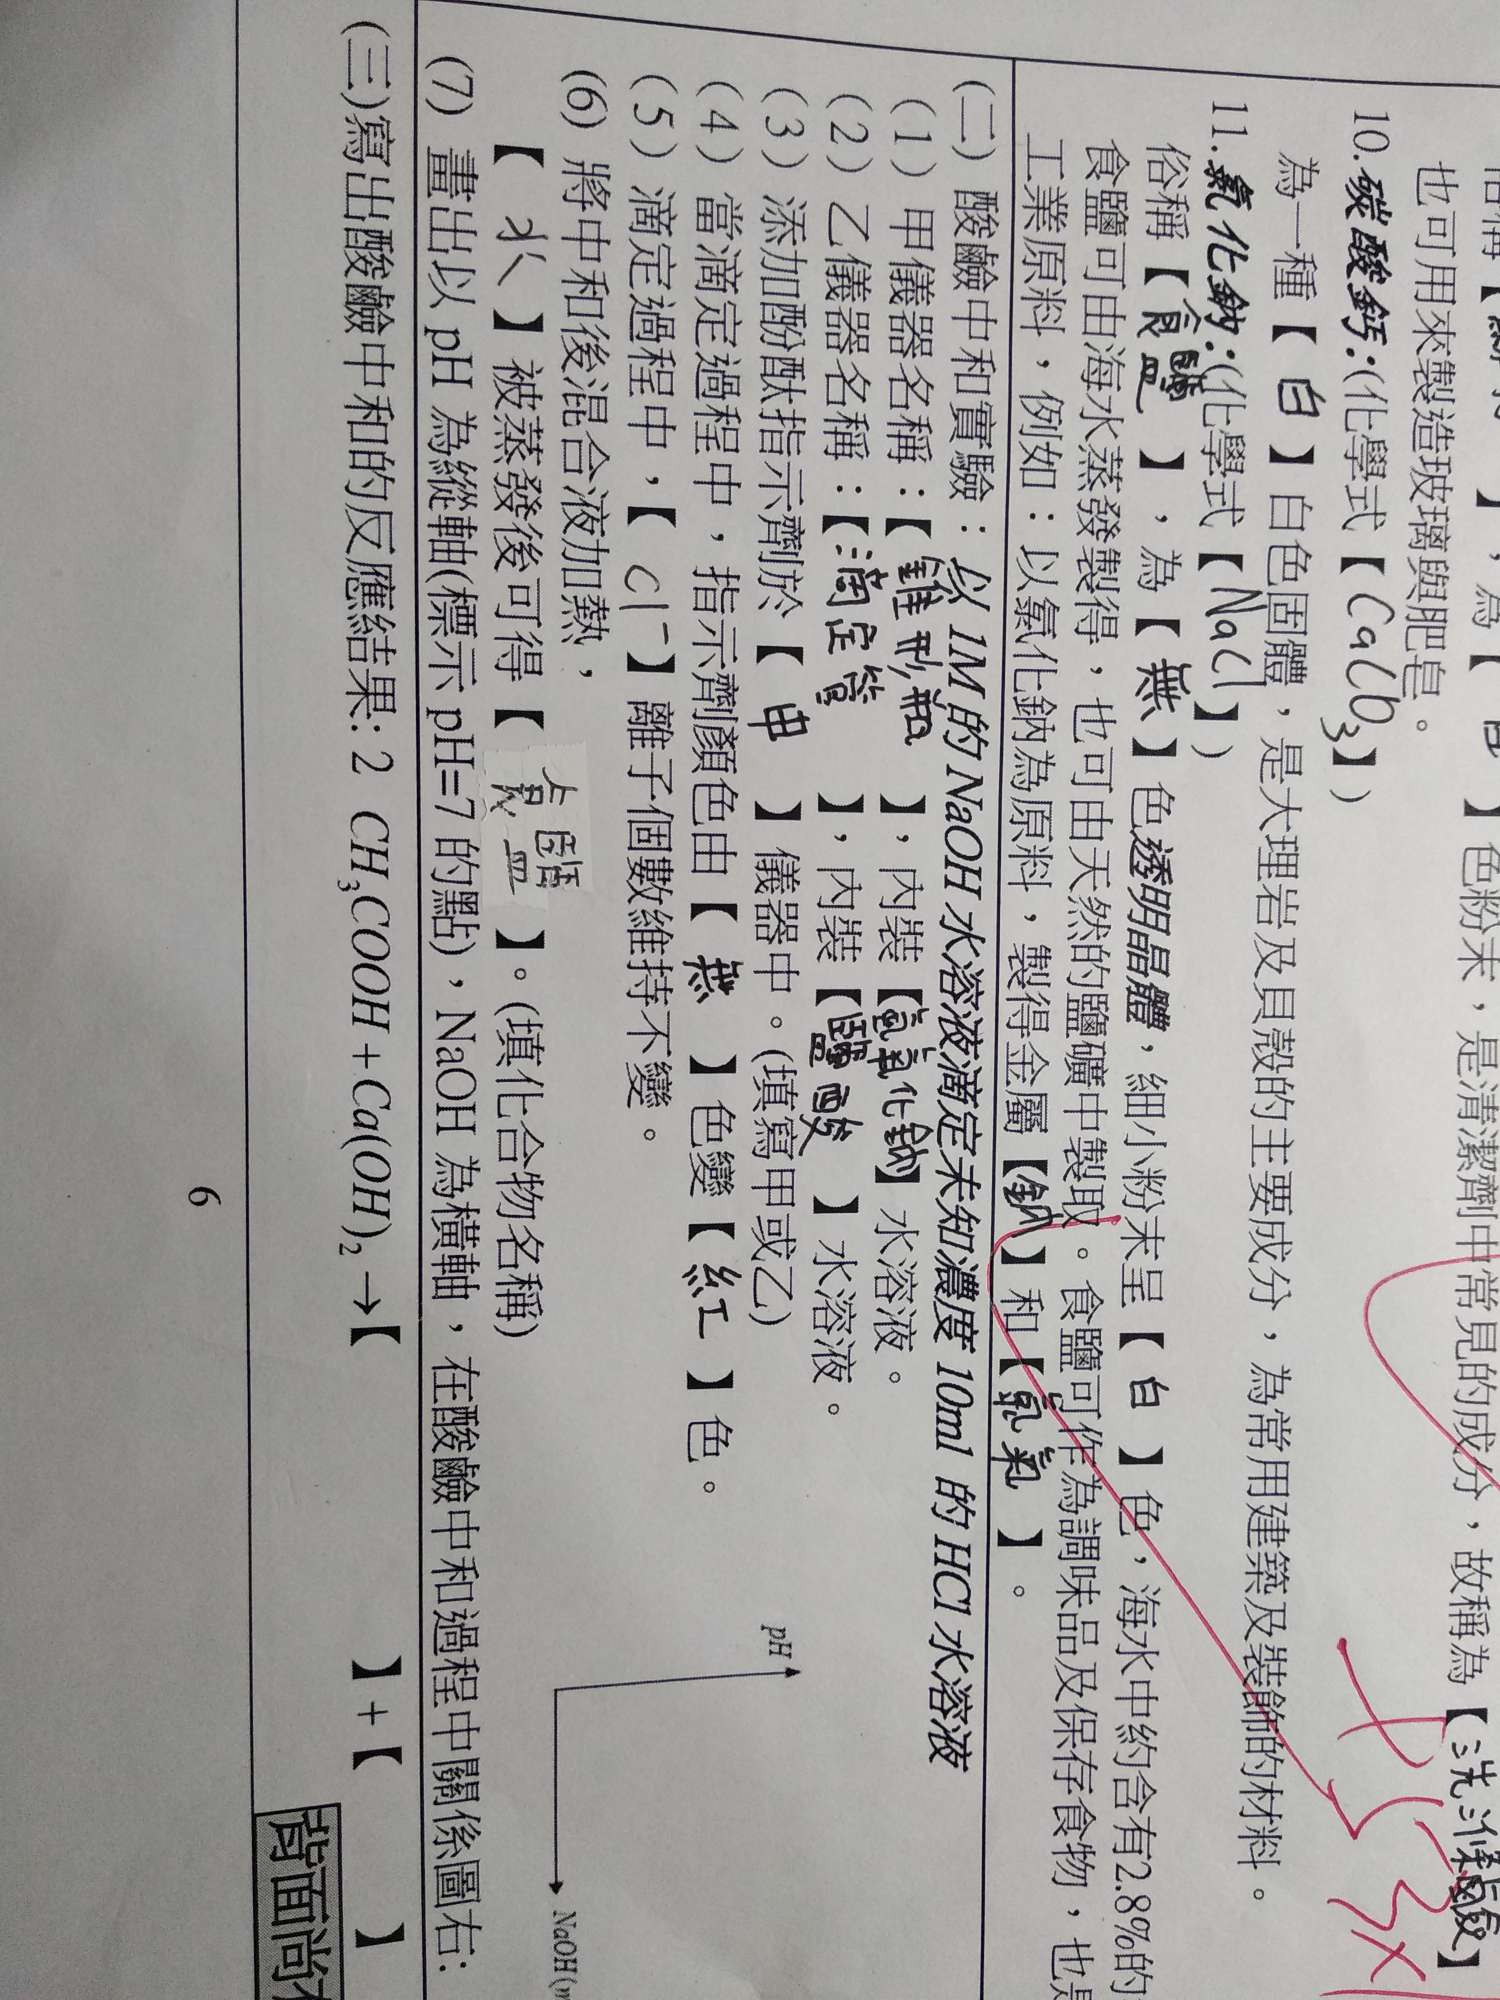 】，為【 】色粉末，是清潔劑中常見的成分，故稱為【洗滌鹼】
也可用來製造玻璃與肥皂。
10.碳酸鈣:(化學式【CaCO3】)
為一種【白】白色固體，是大理岩及貝殼的主要成分，為常用建築及裝飾的材料。
11.氯化鈉:(化學式【NaCl】)
俗稱【食鹽】，為【無】色透明晶體，細小粉末呈【白】色，海水中約含有2.8%的
食鹽可由海水蒸發製得，也可由天然的鹽礦中製取。食鹽可作為調味品及保存食物，也是
工業原料，例如：以氯化鈉為原料，製得金屬【鈉】和【氯氣】。
(二) 酸鹼中和實驗：以 1M 的 NaOH 水溶液滴定未知濃度 10ml 的 HCl 水溶液
(1) 甲儀器名稱：【錐形瓶】，內裝【氫氧化鈉】水溶液。
(2) 乙儀器名稱：【滴定管】，內裝【鹽酸】水溶液。
(3) 添加酚酞指示劑於【甲】儀器中。(填寫甲或乙)
(4) 當滴定過程中，指示劑顏色由【無】色變【紅】色。
(5) 滴定過程中，【Cl⁻】離子個數維持不變。
(6) 將中和後混合液加熱，
【水】被蒸發後可得【食鹽】。(填化合物名稱)
(7) 畫出以 pH 為縱軸(標示 pH=7 的點)，NaOH 為橫軸，在酸鹼中和過程中關係圖右:
pH
NaOH(m
(三)寫出酸鹼中和的反應結果: 2 CH₃COOH + Ca(OH)₂ →【 】+【 】
背面尚
6